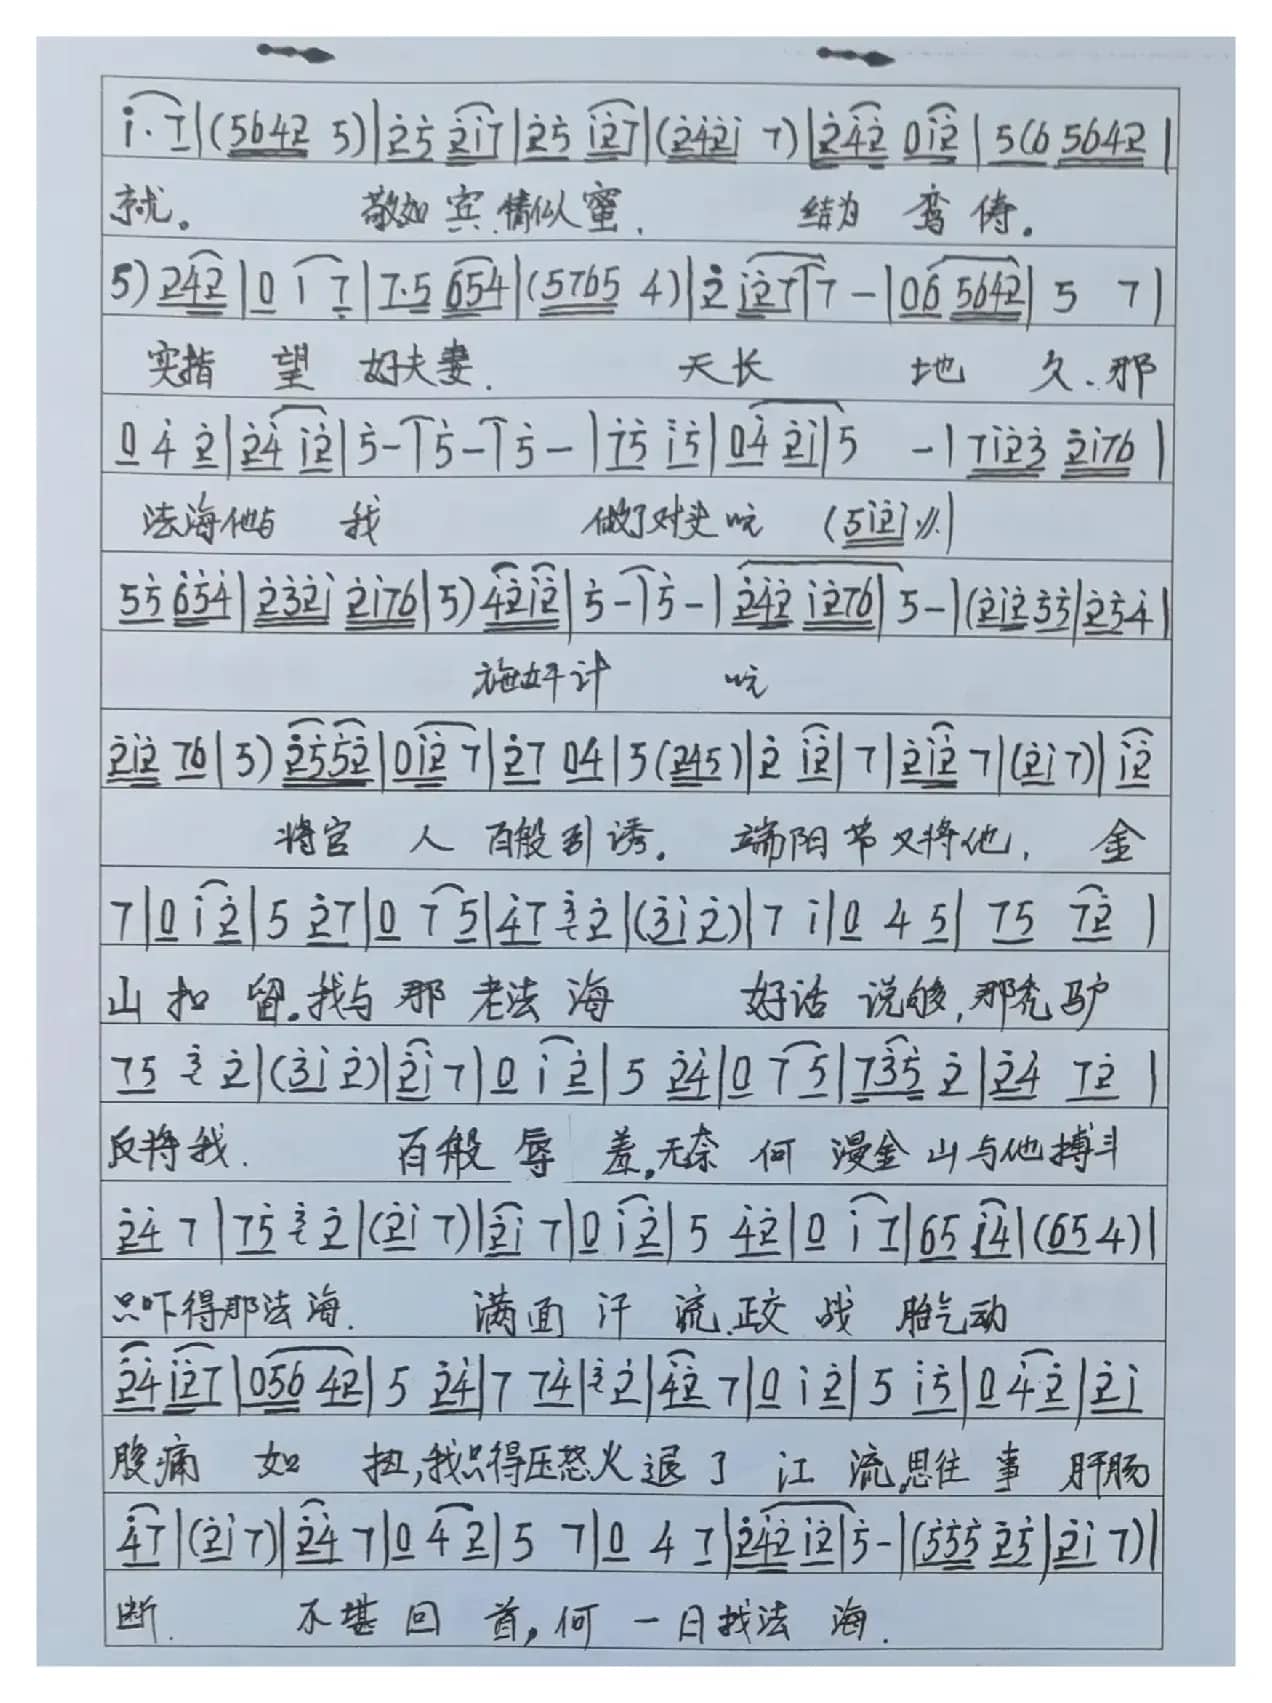 i·7|(5642 5)|25 2i7|25 i27|(242i 7)|242 0i2|5(6 5642|
就。 敬如宾,情似蜜, 结为鸾俦。
5)242|0 i 7|7·5 654|(5765 4)|2 i27|7 -|06 5642|5 7|
实指望好夫妻. 天长地久、那
0 4 2|24 i2|5-|5-|5-|75 i5|04 2i|5 -|7i23 2i76|
法海他与我 做了对头吭 (5i2i〃)
55 654|232i 2i76|5) 42i2|5-|5-|242 i276|5-|(2i2 35|254|
施奸计 吭
2i2 76|5) 2552|0i2 7|27 04|5(245)|2 i2|7|2i2 7|(2i7)|i2
将官人百般引诱。端阳节又将他, 金
7|0 i2|5 27|0 75|47 3 2|(3i2)|7 i|0 4 5|75 72|
山扣留。我与那老法海 好话说够,那秃驴
75 3 2|(3i2)|2i7|0 i2|5 24|0 75|735 2|24 72|
反将我. 百般辱羞。无奈何漫金山与他搏斗
24 7|75 3 2|(2i 7)|2i 7|0 i2|5 42|0 i 7|65 i4|(65 4)|
只吓得那法海. 满面汗流.正交战胎气动
24 i27|056 42|5 24|7 74|3 2|42 7|0 i2|5 i5|0 42|2i
腹痛如扭,我只得压怒火退了江流.思往事肝肠
47|(2i 7)|24 7|0 42|5 7|0 4 7|242 i2|5-|(555 25|2i 7)|
断. 不堪回首,何一日找法海.